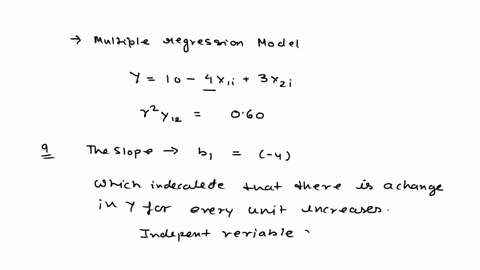 → Multiple regression Model
Y = 10 - 4x₁ᵢ + 3x₂ᵢ
r²y₁₂ = 0.60
a The slope → b₁ = (-4)
which indecalede that there is a change
in Y for every unit increases.
Indepent veriable